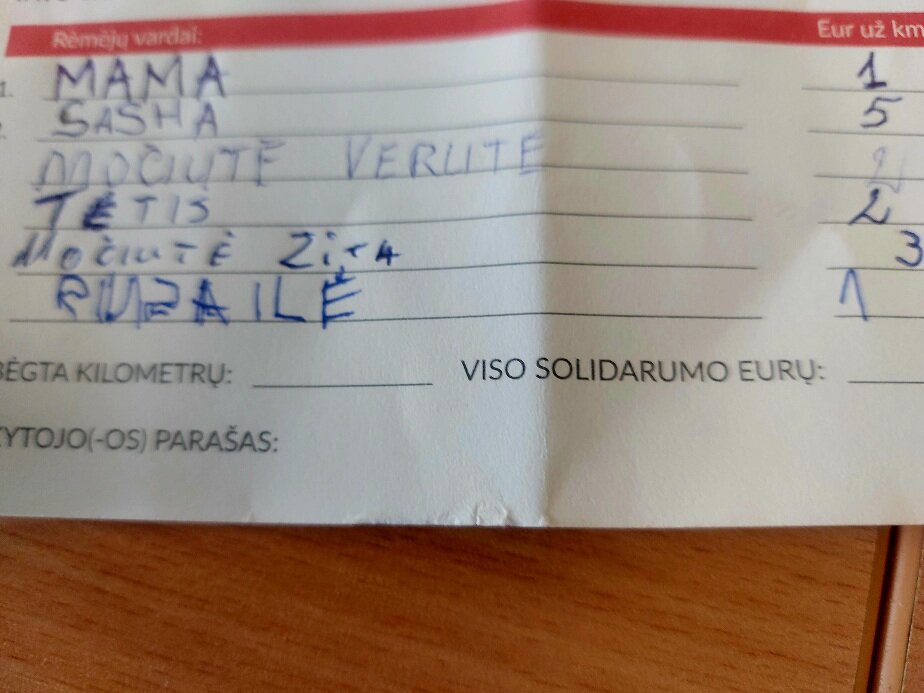 Rėmėjų vardai: Eur už km
1. MAMA 1
SASHA 5
MOČIUTĖ VERUTĖ 2
TĖTIS 2
MOČIUTĖ ZITA 3
RUZAILĖ 1
BĖGTA KILOMETRŲ: VISO SOLIDARUMO EURŲ:
YTOJO(-OS) PARAŠAS: